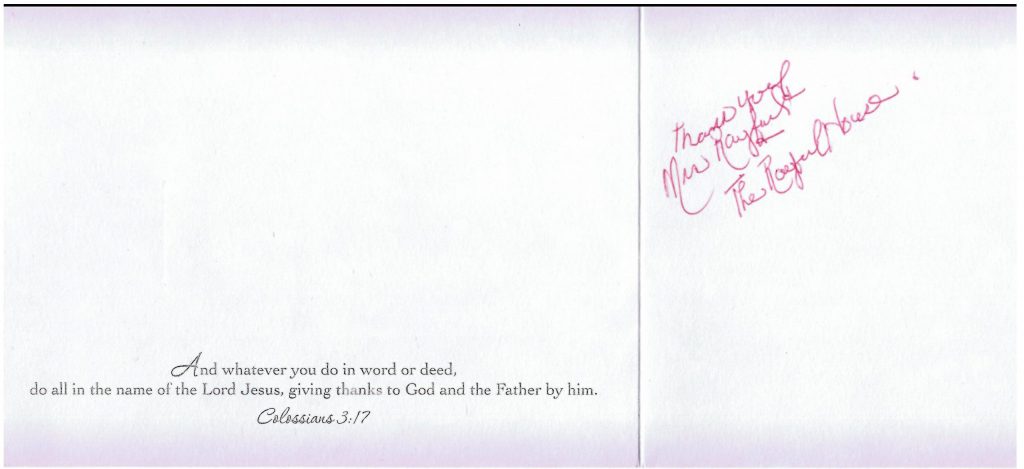 And whatever you do in word or deed,
do all in the name of the Lord Jesus, giving thanks to God and the Father by him.
Colossians 3:17
Thank you
Mrs &
The House